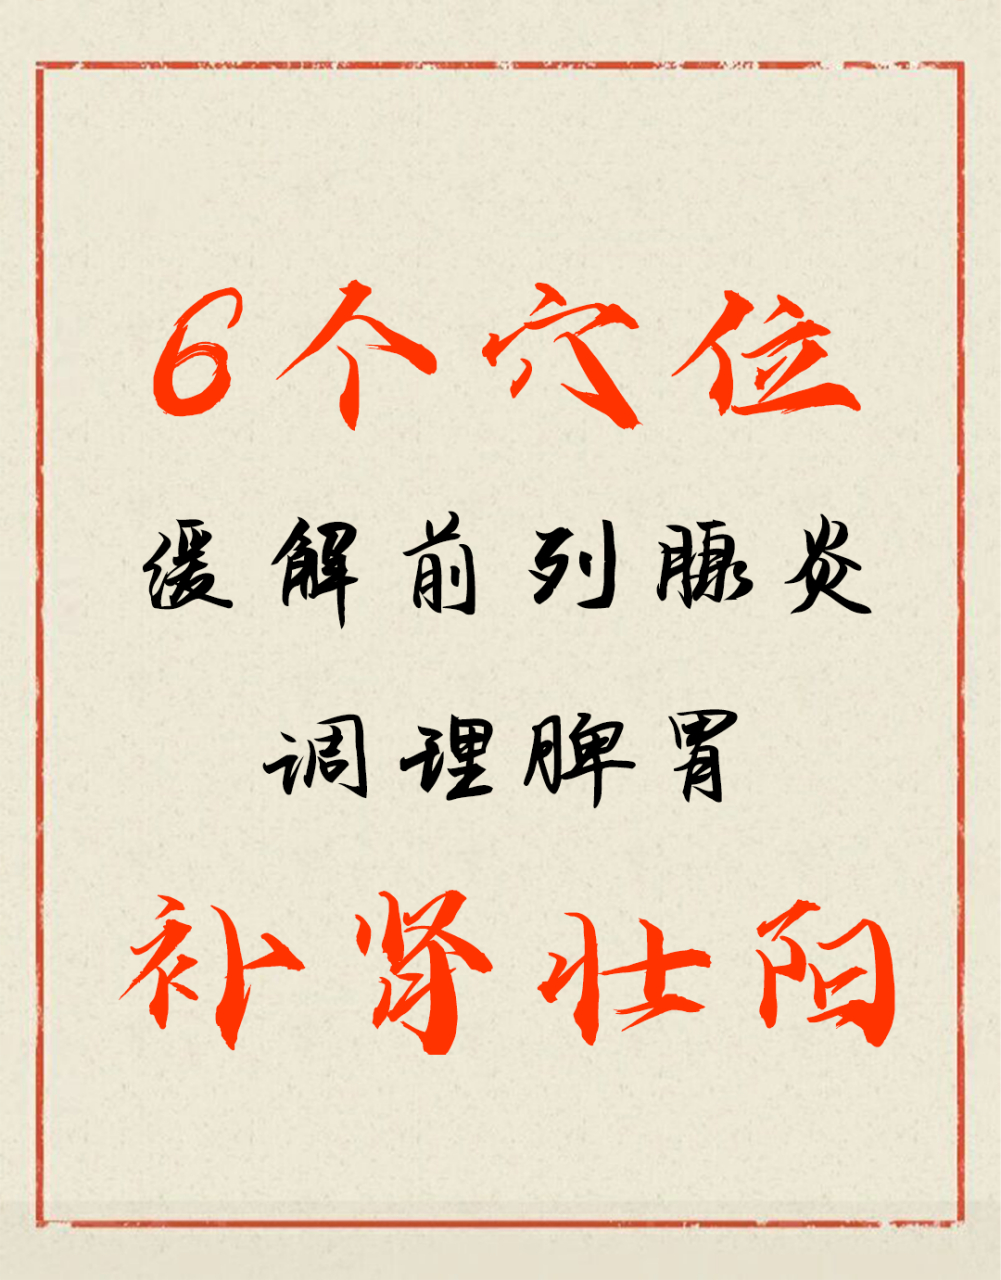 6个穴位
缓解前列腺炎
调理脾胃
补肾壮阳